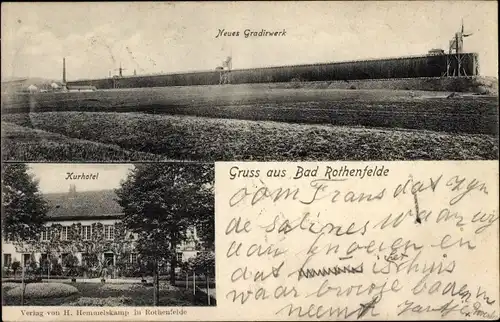 Neues Gradirwerk
Kurhotel
Gruss aus Bad Rothenfelde
oom Frans dat zyn
de salines waar wy
aan knoeien en
dat is het schuis
waar broeoje baden
neemt
Verlag von H. Hemmelskamp in Rothenfelde